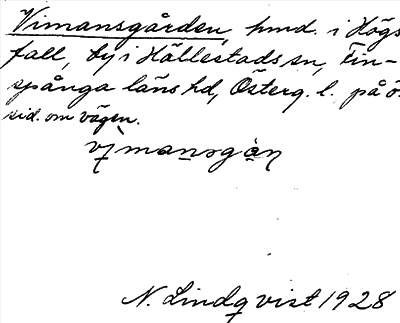 Vimansgården, hmd. i Högs
fall, by i Hällestads sn, Fin-
spånga läns hd, Österg. l. på ö.
sid. om vägen.
vìmansgån
N. Lindqvist 1928